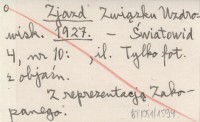 Zjazd Związku Uzdro-
wisk. 1927. - Światowid
4, nr 10: , il. Tylko fot.
z objaśn.
Z reprezentacją Zako-
panego.